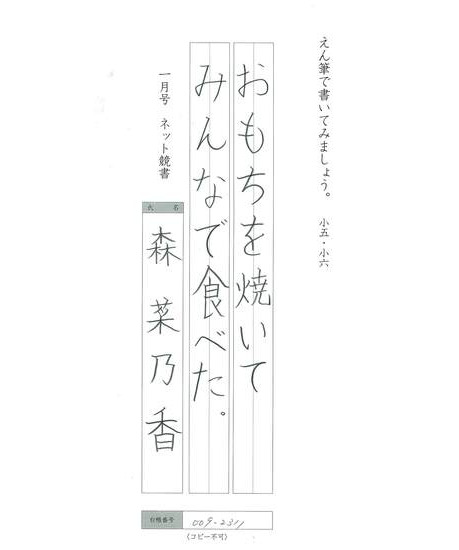 えん筆で書いてみましょう。 小五・小六
おもちを焼いて
みんなで食べた。
一月号 ネット競書
氏名
森菜乃香
台帳番号 009-2311
(コピー不可)